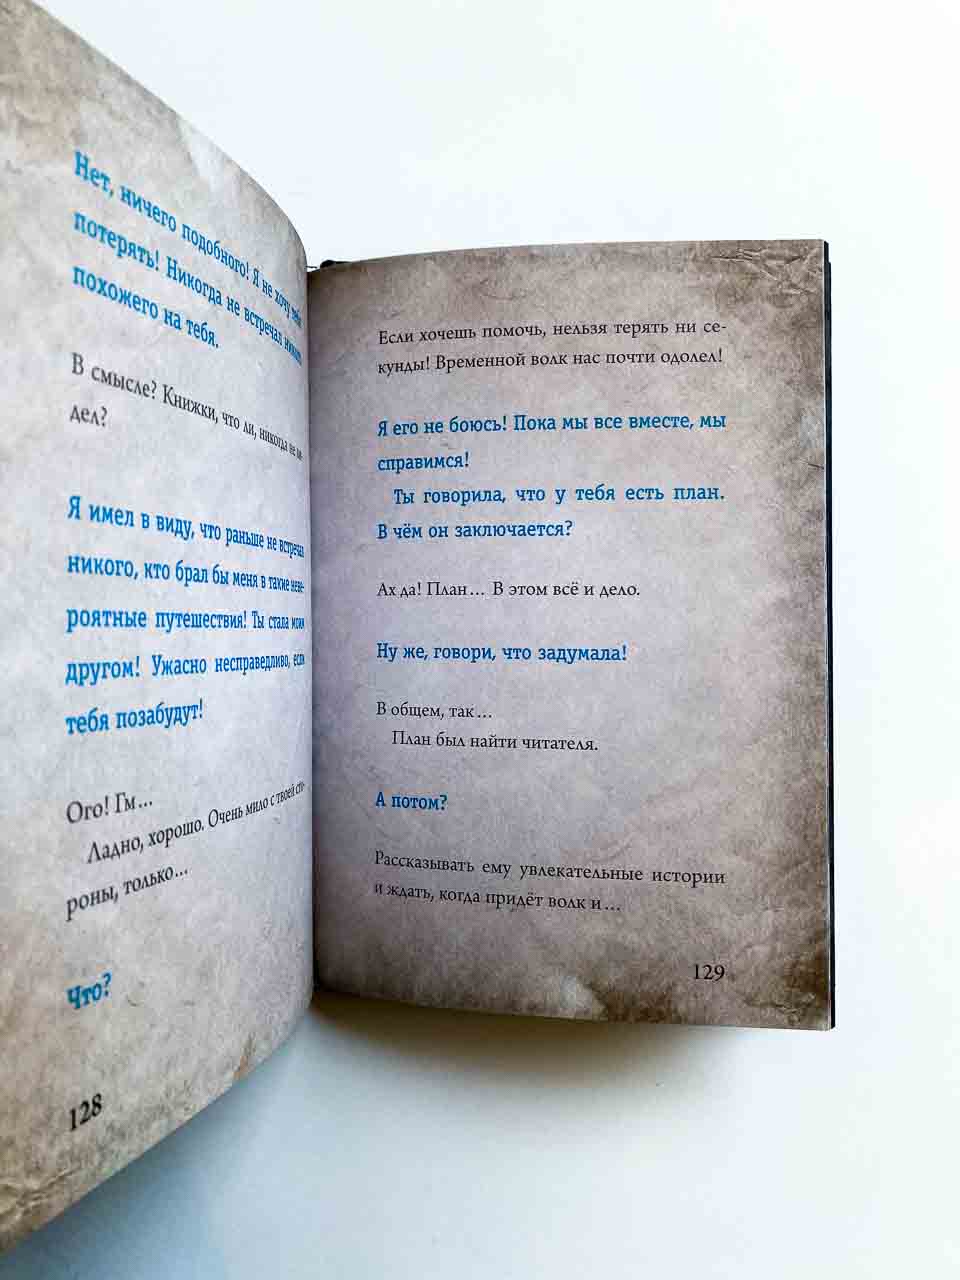 Нет, ничего подобного! Я не хочу тебя
потерять! Никогда не встречал никого
похожего на тебя.
В смысле? Книжки, что ли, никогда не ви-
дел?
Я имел в виду, что раньше не встречал
никого, кто брал бы меня в такие неве-
роятные путешествия! Ты стала моим
другом! Ужасно несправедливо, если
тебя позабудут!
Ого! Гм...
Ладно, хорошо. Очень мило с твоей сто-
роны, только...
Что?
128
Если хочешь помочь, нельзя терять ни се-
кунды! Временной волк нас почти одолел!
Я его не боюсь! Пока мы все вместе, мы
справимся!
Ты говорила, что у тебя есть план.
В чём он заключается?
Ах да! План... В этом всё и дело.
Ну же, говори, что задумала!
В общем, так...
План был найти читателя.
А потом?
Рассказывать ему увлекательные истории
и ждать, когда придёт волк и...
129